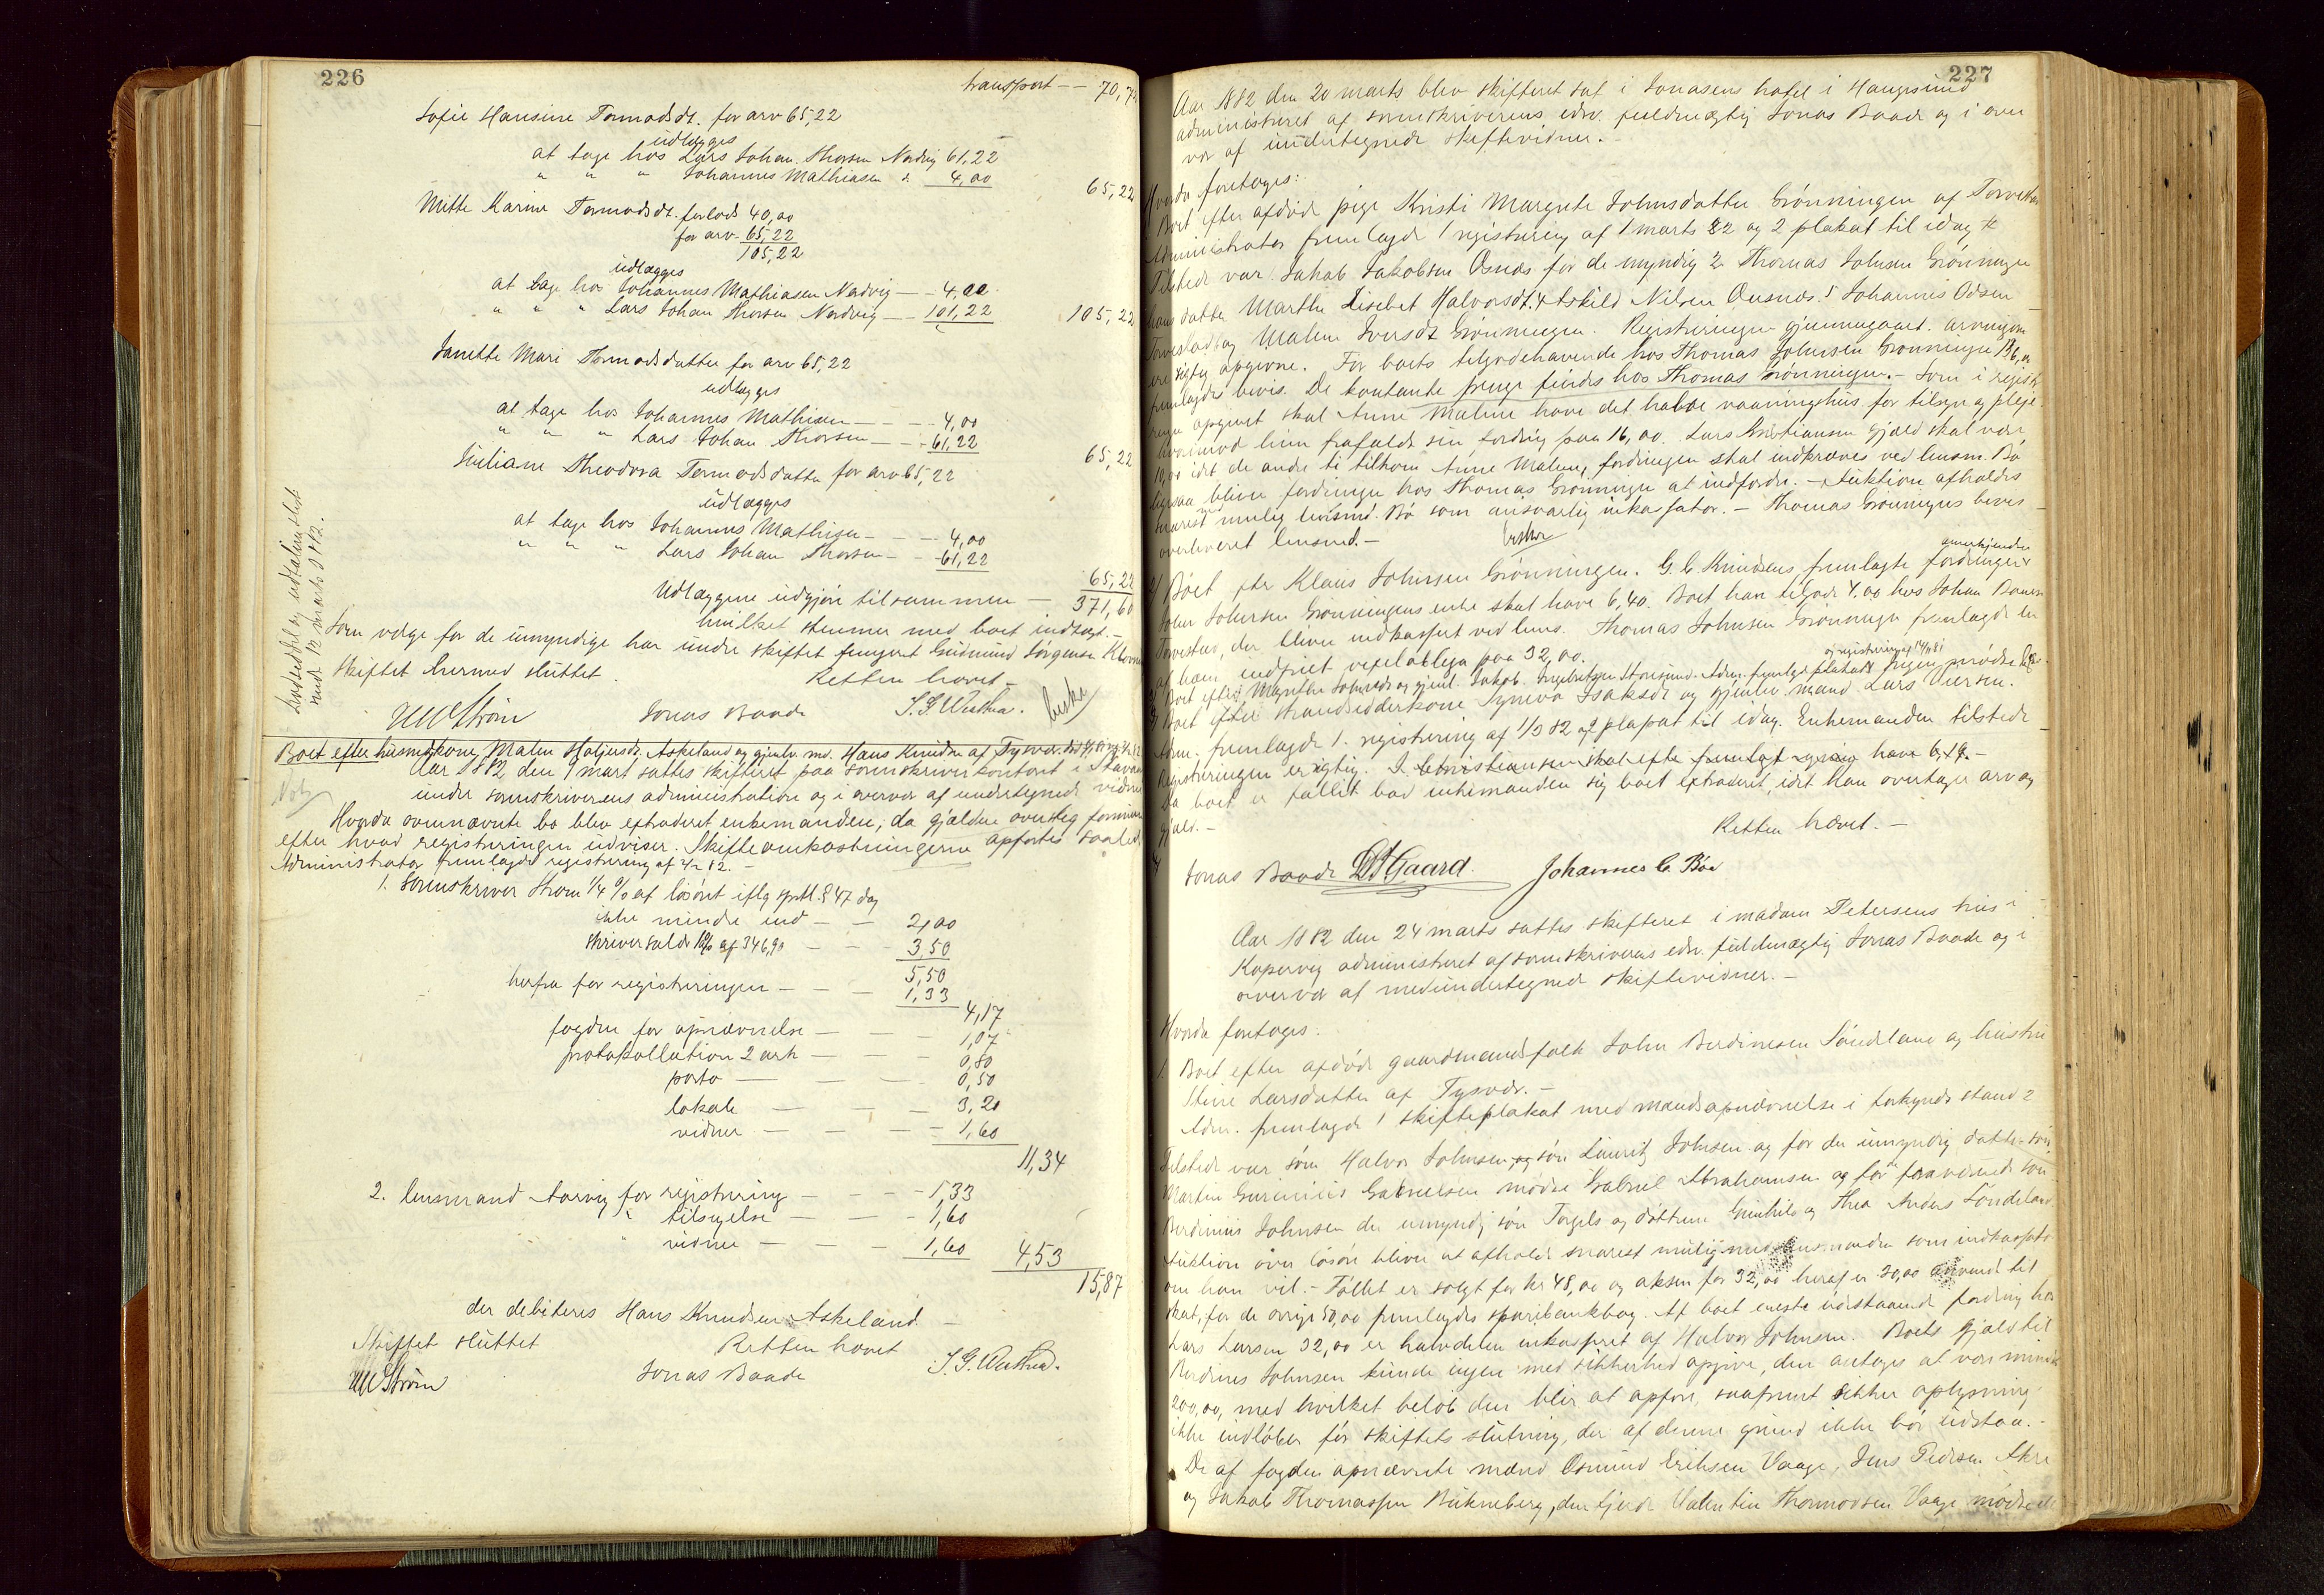 226
transport — 70,7
Sofie Hansine Tormodsdt. for arv 65,22
udlægges
at tage hos Lars Johan Thorsen Nordvig 61,22
" " " Johannes Mathiasen " 4,00
65,22
Mitte Karine Tormodsdt. forlods 40,00
for arv 65,22
105,22
udlægges
at tage hos Johannes Mathiasen Nordvig — 4,00
" " " Lars Johan Thorsen Nordvig — 101,22
105,22
Janette Mari Tormodsdatter for arv 65,22
udlægges
at tage hos Johannes Mathisen — 4,00
" " " Lars Johan Thorsen — 61,22
65,22
Juliane Theodora Tormodsdatter for arv 65,22
udlægges
at tage hos Johannes Mathisen — 4,00
" " " Lars Johan Thorsen — 61,22
65,22
Udlæggene udgjøre tilsammen — 371,60
hvilket stemmer med boets indtægt. —
Som værge for de umyndige har under skiftet fungeret Gudmund Jørgensen
Skiftet hermed sluttet. Retten hævet —
Lodseddel og udtalin
12 marts 1882.
Strøm Jonas Baade S. G.
Boet efter husmdkone Malen Askeland og gjenlv. md. Hans Knudsen af Tysvær
Aar 1882 den 1 mart sattes skifteret paa sorenskriverkontoret i Stavan
under sorenskriverens administration og i overvær af undertegnede vidner
Hvorda ovennævnte bo blev extraderet enkemanden, da gjælden oversteg formuen
efter hvad registreringen udviser. Skifteomkostningerne opførtes saaledes
Administrator fremlagde registrering af 82. —
1. Sorenskriver Strøm 1/4 % af løsøret iflg sprtl. § 47 dog
ikke mindre end — 2,00
skriversold 1% af 346,90 — 3,50
5,50
herfra for registreringen — 1,33
4,17
fogden for opnævnelse — 1,07
protokollation 2 ark — 0,80
porto — 0,50
lokale — 3,20
vidner — 1,60
11,34
2. lensmand Aarvig for registrering — 1,33
" tilsigelse — 1,60
" vidner — 1,60
4,53
15,87
der debiteres Hans Knudsen Askeland —
Skiftet sluttet Retten hævet
Strøm Jonas Baade S. G.
227
Aar 1882 den 20 marts blev skifteret sat i Jonasens hotel i Haugesund
administreret af sorenskriverens edsv. fuldmægtig Jonas Baade og i over
vær af undertegnede skiftevidner. —
Hvorda foretoges:
Boet efter afdøde pige Kristi Margrete Johnsdatter Grønningen af Torvestad
Administrator fremlagde 1 registrering af 1 marts 82 og 2 plakat til idag
Tilstede var Jakob Jakobsen Osnæs for de umyndig 2 Thomas Johnsen Grønningen
hans datter Marthe Lisebet Halvorsdt. 4 Askild Nilsen Ausnæs. 5 Johannes Odsen
Torvestad og Malene Iversdt Grønningen. Registreringen gjennemgaaet. Arvingerne
ere rigtig opgivne. For boets tilgodehavende hos Thomas Johnsen Grønningen
fremlagdes bevis. De kontante penge findes hos Thomas Grønningen. — Som i registre
ringen opgivet skal Anne Malene have det halve vaaningshus for tilsyn og pleje
hvorimod hun frafaldt sin fordring paa 16,00. Lars Kristiansens gjæld skal være
10,00 idet de andre ti tilkom Anne Malene, fordringen skal indkræves ved lensm. Bø
ligesaa bliver fordringen hos Thomas Grønningen at indfordre. — Auktion afholdes
snarest mulig ved lensmd. Bø som ansvarlig inkassator. — Thomas Grønningens bevis
overleveret lensmd. —
2) Boet efter Klaus Johnsen Grønningen. G. C. Knudsens fremlagte fordringer anerkjendes
John Johnsen Grønningens enke skal have 6,40. Boet har tilgode 4,00 hos Johan
Torvestad, der bliver indkasseret ved lens. Thomas Johnsen Grønningen fremlagde en
af ham indfriet vexelobliga paa 32,00.
Boet efter Marthe Johnsdt og gjenl. Jakob Storesund. Adm. fremlagde plakat og registrering af 14/1 81 Ingen mødte
Boet efter strandsidderkone Syneva Isaksdt og gjenlev. mand Lars Iversen.
Adm. fremlagde 1. registrering af 1/3 82 og 2 plakat til idag. Enkemanden tilstede
Registreringen er rigtig. J. Christiansen skal efter fremlagt regning have 6,19.
Da boet er fallit bad enkemanden sig boet extraderet, idet han overtager arv og
gjæld. —
Retten hævet. —
Jonas Baade Gaard. Johannes C. Bøe
Aar 1882 den 24 marts sattes skifteret i madam Petersens hus i
Kopervig administreret af sorenskriverens edsv. fuldmægtig Jonas Baade og i
overvær af medundertegnede skiftevidner. —
Hvorda foretoges:
1. Boet efter afdøde gaardmandsfolk John Berdinesen Søndeland og hustru
Stine Larsdatter af Tysvær. —
Adm. fremlagde 1 skifteplakat med mandsopnævnelse i forkyndt stand 2
Tilstede var søn Halvor Johnsen, og søn Lauritz Johnsen og for den umyndig datter-søn
Martin Guriniis Gabrielsen mødte Gabriel Abrahamsen og for fraværende søn
Berdinius Johnsen den umyndig søn Torgels og døttrene Gunhild og Thea Anders Søndeland
Auktion over løsøre bliver at afholde snarest mulig med lensmanden som indkassator
om han vil. — Føllet er solgt for kr 48,00 og oksen for 32,00 heraf er 30,00 anvendt til
skat, for de øvrige 50,00 fremlagdes sparebankbog. Af boet eneste udestaaende fordring hos
Lars Larsen 32,00 er halvdelen inkasseret af Halvor Johnsen. Boets gjæld til
Berdines Johnsen kunde ingen med sikkerhed opgive, den antoges at være mindst
200,00, med hvilket beløb den blir at opføre, saafremt sikker oplysning
ikke indløber før skiftets slutning, der af denne grund ikke bør udstaa. —
De af fogden opnævnte mænd Osmund Eriksen Vaage, Jens Pedersen Akre
og Jakob Thomassen Bukneberg, den fjerde Valentin Thormodsen Vaage mødte